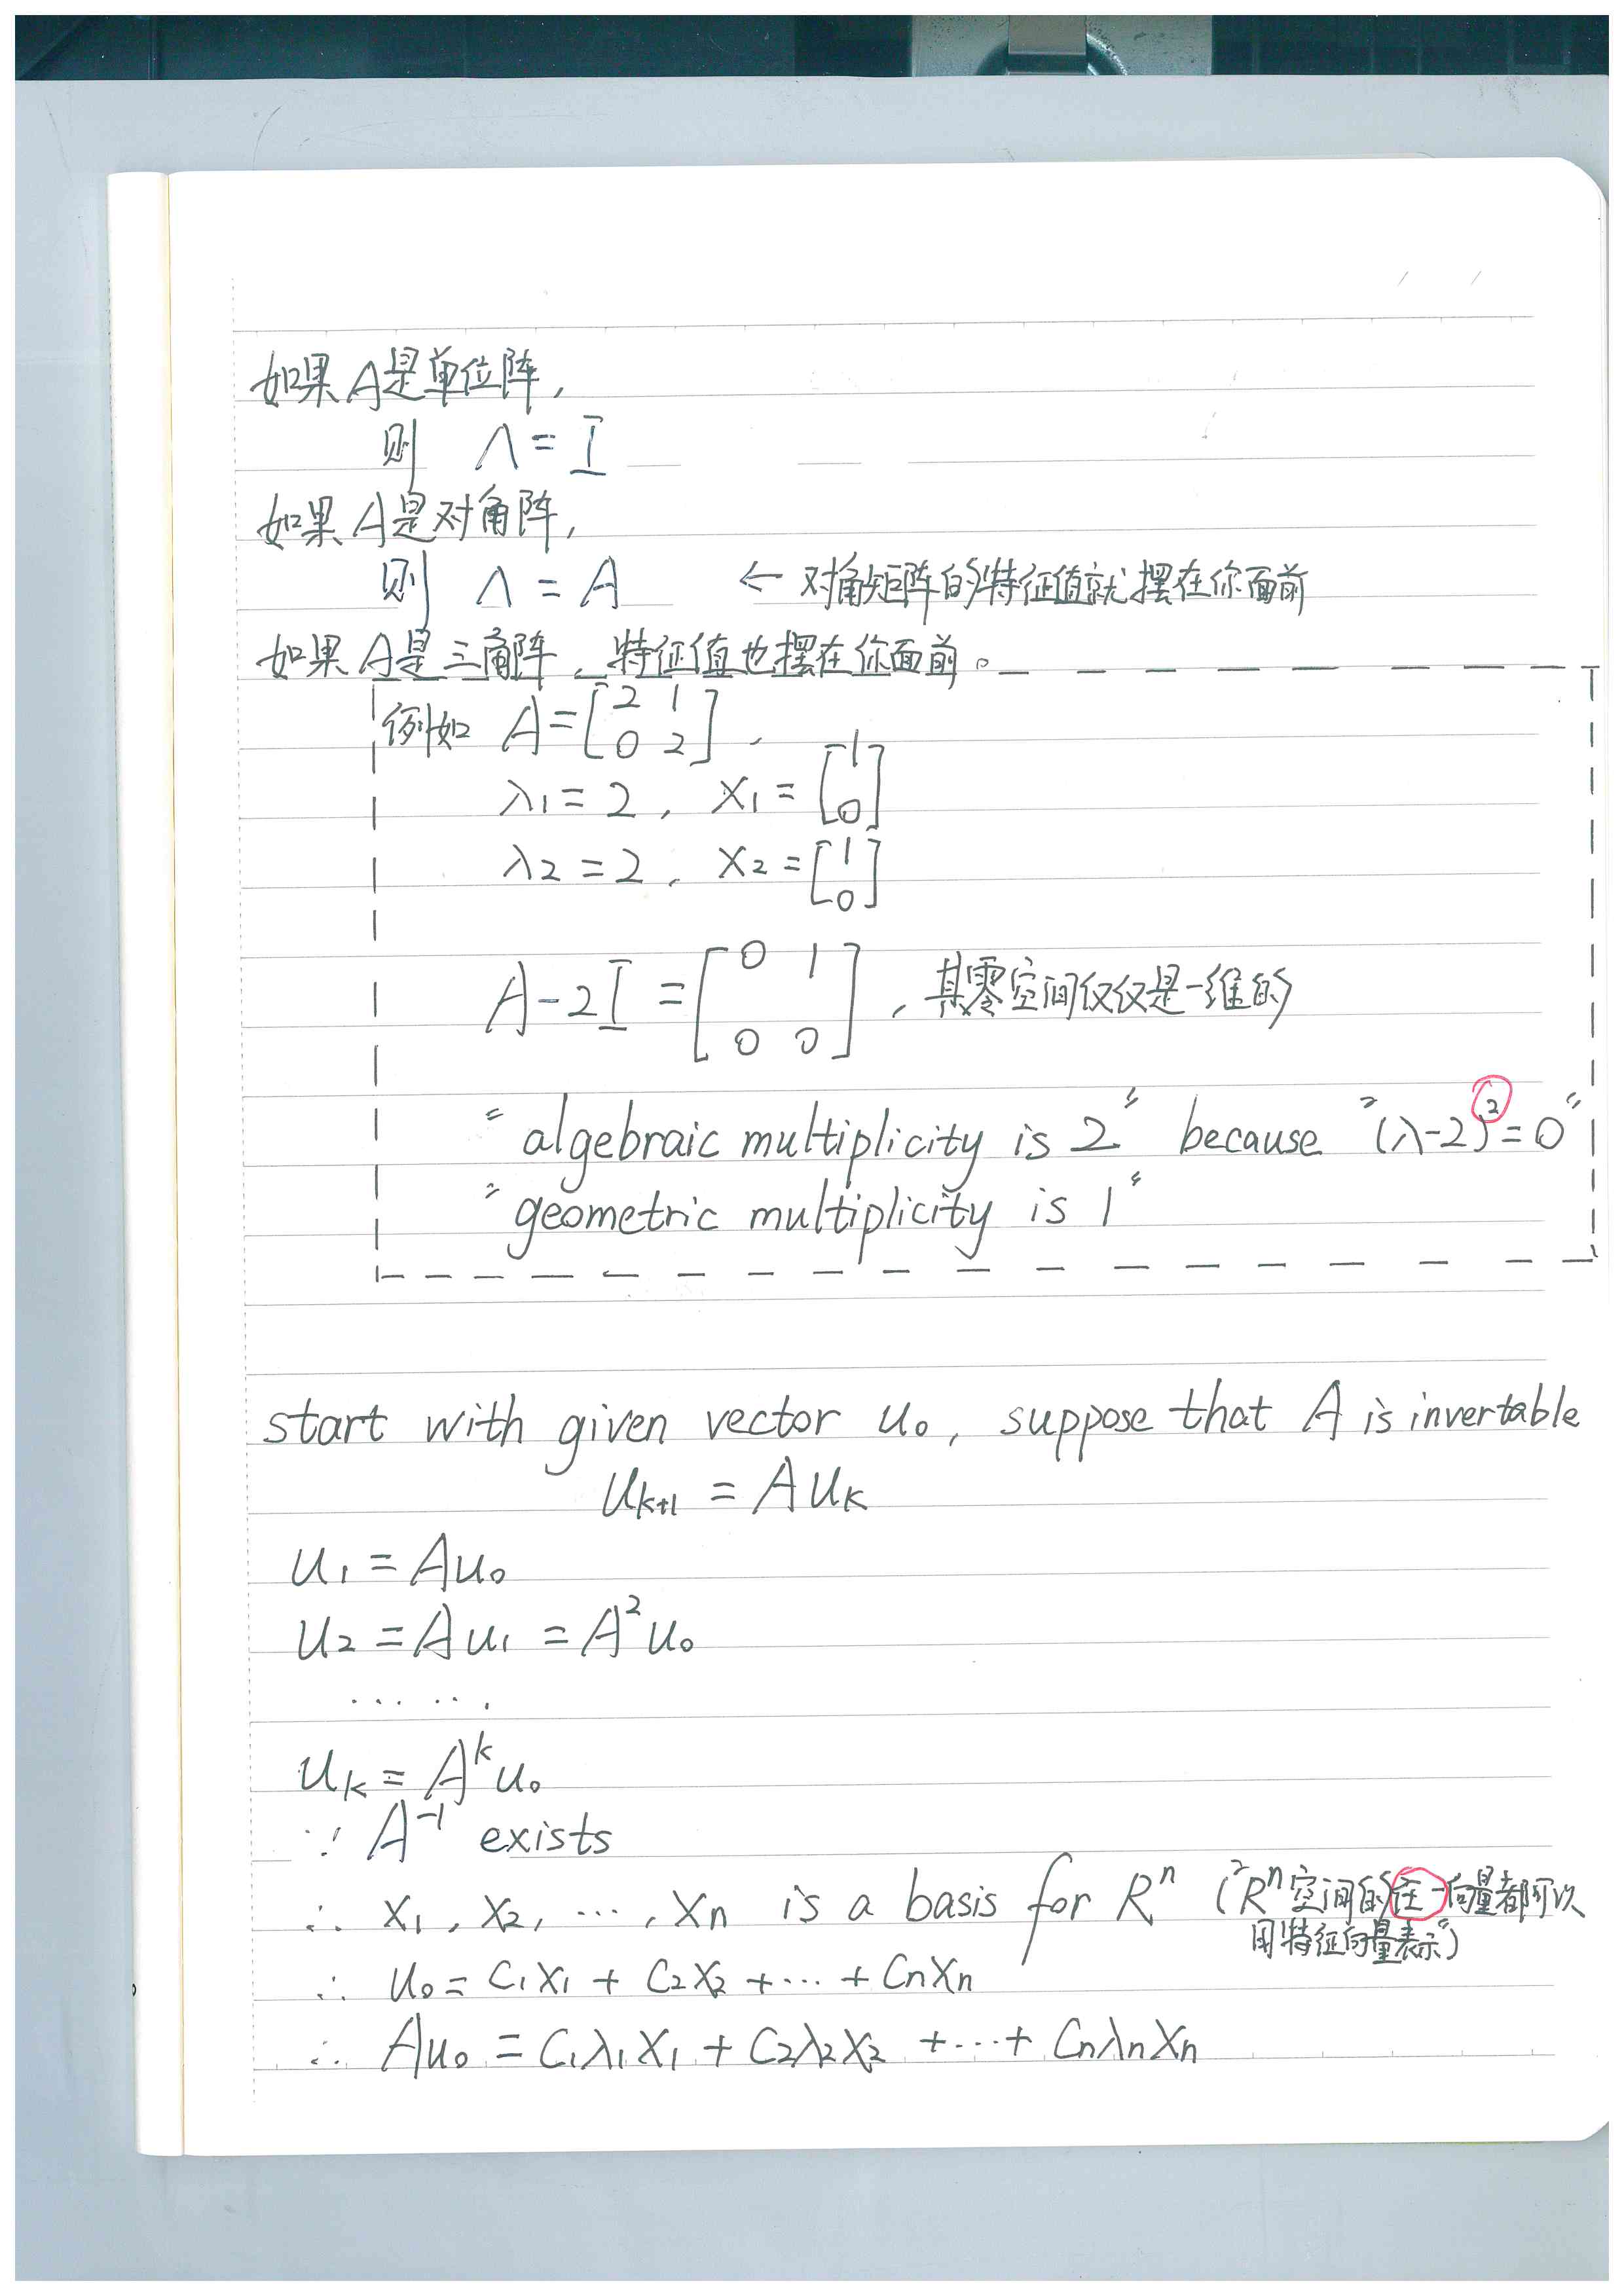 如果A是单位阵,
则 Λ = I
如果A是对角阵,
则 Λ = A ← 对角矩阵的特征值就摆在你面前
如果A是三角阵,特征值也摆在你面前。
例如 A = [2 1; 0 2],
λ₁ = 2, x₁ = [1; 0]
λ₂ = 2, x₂ = [1; 0]
A - 2I = [0 1; 0 0], 其零空间仅仅是一维的
"algebraic multiplicity is 2" because "(λ-2)² = 0"
"geometric multiplicity is 1"
start with given vector u₀, suppose that A is invertable
uₖ₊₁ = Auₖ
u₁ = Au₀
u₂ = Au₁ = A²u₀
……
uₖ = Aᵏu₀
∵ A⁻¹ exists
∴ x₁, x₂, …, xₙ is a basis for Rⁿ ("Rⁿ空间的任一向量都可以
用特征向量表示")
∴ u₀ = c₁x₁ + c₂x₂ + … + cₙxₙ
∴ Au₀ = c₁λ₁x₁ + c₂λ₂x₂ + … + cₙλₙxₙ